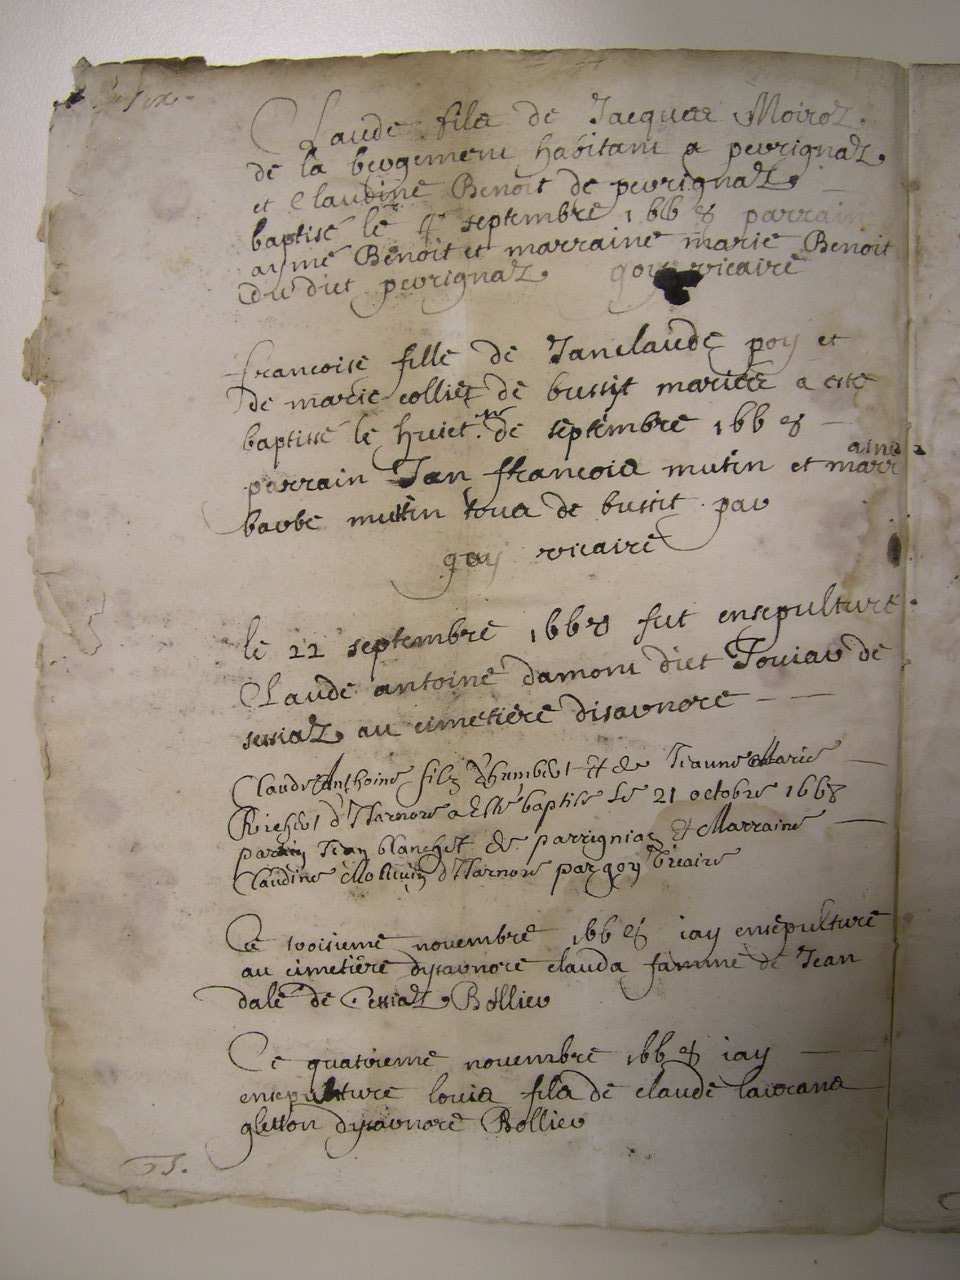 Claude fils de Jacques Moiroz
de la bergement habitant a perrignaz
et Claudine Benoit de perrignaz
baptisé le 4e septembre 1668 parrain
aymé Benoit et marraine marie Benoit
du dict perrignaz goy vicaire
francoise fille de Janclaude poy et
de marie colliez de bussyt mariées a esté
baptissé le huict me de septembre 1668
parrain Jan francois mutin et marraine
barbe muttin tous de bussit par
goy vicaire
le 22 septembre 1668 fut ensepulturé
Claude antoine damont dict Touiar de
sessiaz au cimetiere disarnore
Claude Anthoine filz d'humbert et de Jeanne Marie
Richert d'Iharnore a Esté baptisé Le 21 octobre 1668
parain Jean blanchet de parrigniaz Et Marraine
Claudine d'Iharnore par goy Vicaire
Ce troisieme novembre 1668 iay ensepulturé
au cimetiere dysarnore clauda famme de Jean
dale de Cessiaz Bollier
Ce quatrieme novembre 1668 iay
ensepulturé louis fils de claude laurans
gletton dysarnore Bollier